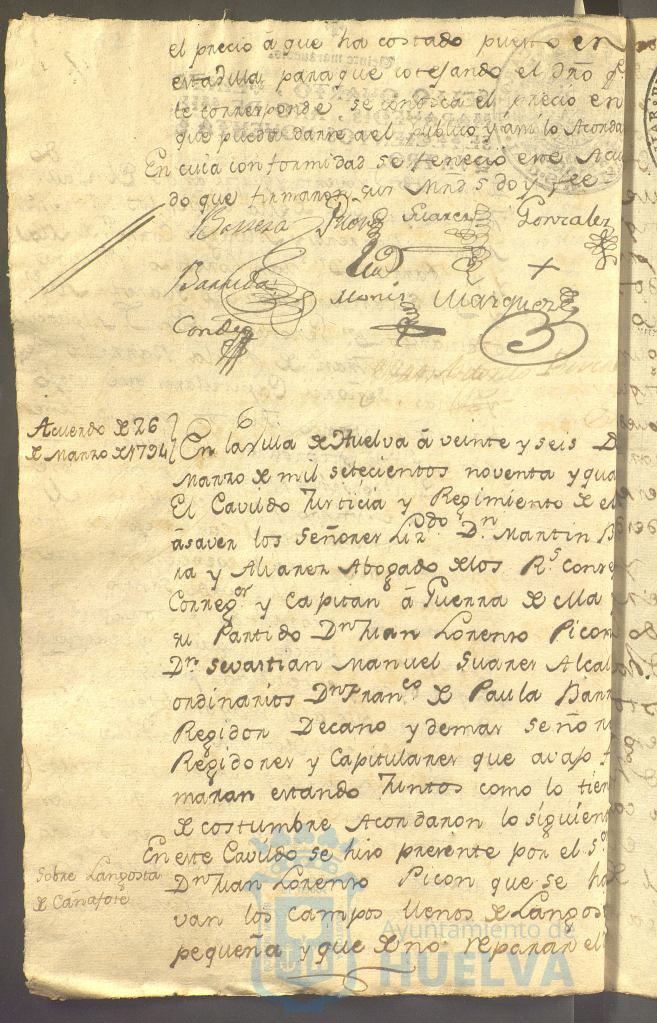 el precio á que ha costado puerto en
esta villa para que cotejando el
le corresponde se conosca el precio en
que pueda darse a el publico y asi lo Acorda
En cuia conformidad se feneció este Acu
do que firmaron sus
Barrera Picon Suarez Gonzalez
Barreda Moniz Marquez
Conde
Acuerdo de 26
de Marzo de 1794
En la Villa de Huelva á veinte y seis D
Marzo de mil setecientos noventa y qua
El Cavildo Justicia y Regimiento de e
á saver los Señores Lizdo Dn Martin B
ra y Alvarez Abogado de los Rs Conse
Corregor y Capitan á Guerra de ella
su Partido Dn Juan Lorenzo Picon
Dn Sevastian Manuel Suarez Alcal
ordinarios Dn Franco de Paula Barr
Regidor Decano y demas Seño
Regidores y Capitulares que avajo f
maran estando Juntos como lo tien
de costumbre Acordaron lo siguien
En este Cavildo se hiso presente por el Sr
Sobre Langosta
de Cañafote
Dn Juan Lorenzo Picon que se ha
van los campos llenos de Langos
pequeña y que de no reparar el
Ayuntamiento de
HUELVA